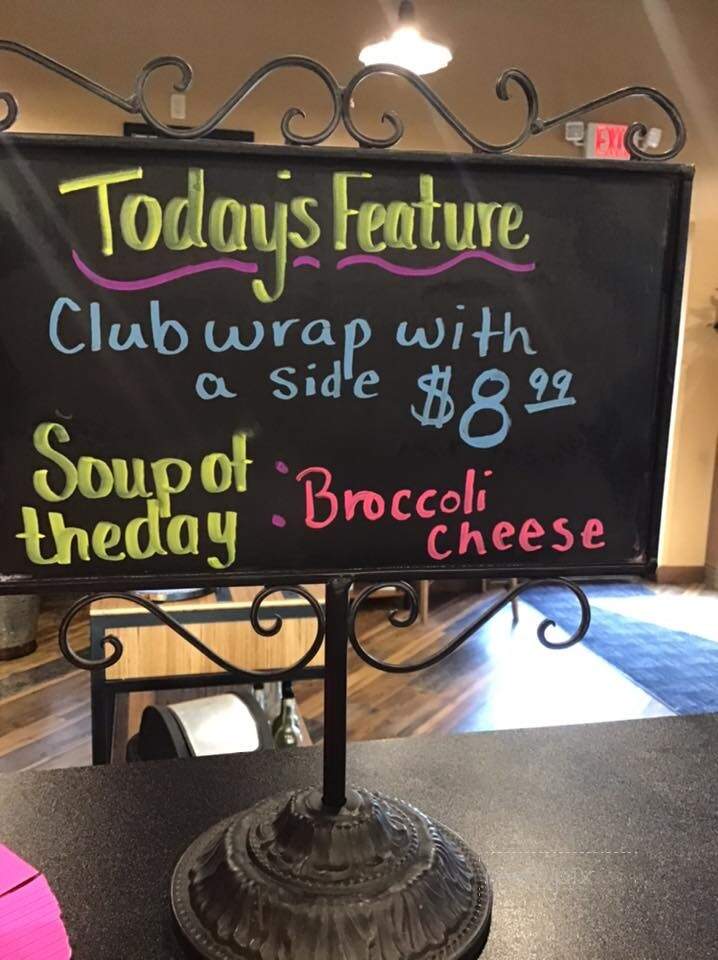 EXIT
Today's Feature
Club wrap with
a side $8.99
Soup of : Broccoli
the day cheese